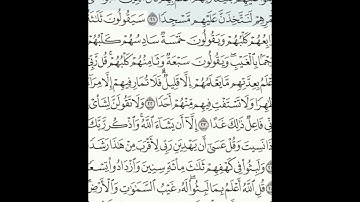 أَمْرِهِمْ لَنَتَّخِذَنَّ عَلَيْهِم مَّسْجِدًا ٢١ سَيَقُولُونَ ثَلَٰثَةٌ
رَّابِعُهُمْ كَلْبُهُمْ وَيَقُولُونَ خَمْسَةٌ سَادِسُهُمْ كَلْبُهُمْ
رَجْمًۢا بِٱلْغَيْبِ وَيَقُولُونَ سَبْعَةٌ وَثَامِنُهُمْ كَلْبُهُمْ قُل رَّبِّي
أَعْلَمُ بِعِدَّتِهِم مَّا يَعْلَمُهُمْ إِلَّا قَلِيلٌ فَلَا تُمَارِ فِيهِمْ إِلَّا مِرَآءً
ظَٰهِرًا وَلَا تَسْتَفْتِ فِيهِم مِّنْهُمْ أَحَدًا ٢٢ وَلَا تَقُولَنَّ لِشَا۟ىْءٍ
إِنِّي فَاعِلٌ ذَٰلِكَ غَدًا ٢٣ إِلَّآ أَن يَشَآءَ ٱللَّهُ وَٱذْكُر رَّبَّكَ
إِذَا نَسِيتَ وَقُلْ عَسَىٰٓ أَن يَهْدِيَنِ رَبِّي لِأَقْرَبَ مِنْ هَٰذَا رَشَدًا
وَلَبِثُوا۟ فِي كَهْفِهِمْ ثَلَٰثَ مِا۟ئَةٍ سِنِينَ وَٱزْدَادُوا۟ تِسْعًا
قُلِ ٱللَّهُ أَعْلَمُ بِمَا لَبِثُوا۟ لَهُۥ غَيْبُ ٱلسَّمَٰوَٰتِ وَٱلْأَرْضِ